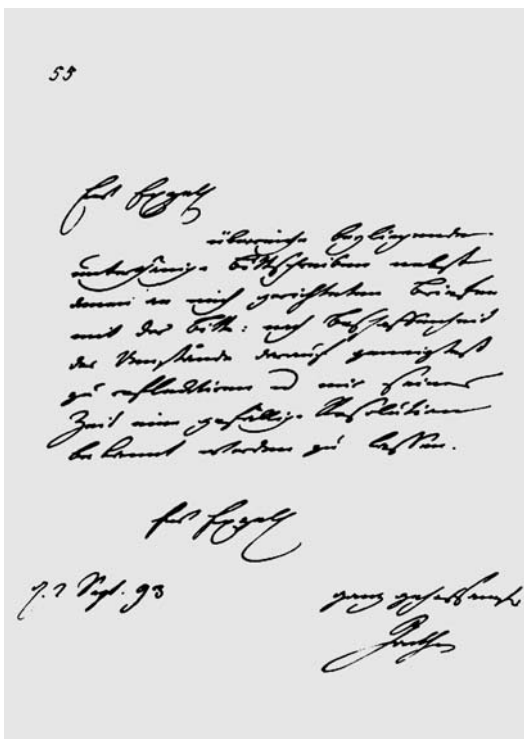 55
Ew Exzell
überreiche beyliegende
unterthänige Bittschreiben nebst
denen an mich gerichteten Briefen
mit der Bitte: nach Beschaffenheit
der Umstände darauf geneigtest
zu reflecktiren u mir seiner
Zeit eine gefällige Resolution
bekannt werden zu lassen.
Ew Exzell
Sept. 93
ganz gehorsamster
Goethe